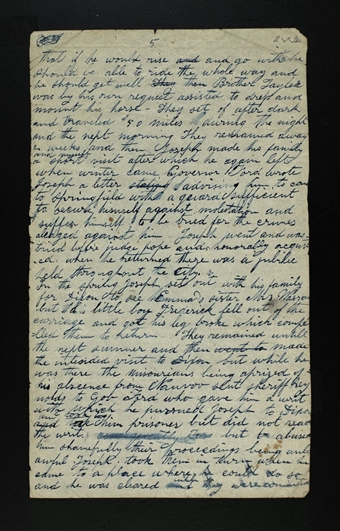 5
that if he would rise and and go with he
should be able to ride the whole way and
he should get well then Brother Taylor
was by his own request assisted to dress and
mount his horse They set of after dark
and traveled 50 miles during the night
and the next morning They remained away
weeks and then Joseph made his family
and myself
a short visit after which he again left
when winter came Governor Ford wrote
Joseph a letter advising him to come
to Springfield with a guard sufficient
to secure himself against molestation and
suffer himself to be tried for the crimes
alleged against him Joseph went and was
tried before judge pope and honorably acquit
ed. when he returned there was a jubilee
held throughout the City
In the spring Joseph set out with his family
for Dixon to see Emma's sister Mrs Wasson
but his little boy Frederick fell out of the
carriage and got his leg broke which compel
led them to return They remained untill
the next summer and then went to made
the intended visit to Dixon but while he
was there the Missourians being aprized of
his abscence from Nauvoo sent sheriff Rey
nolds to Gov Ford who gave him a writ
with which he pursued Joseph to Dixon
and took them prisoner but did not read
the writ but to abuse
him shamefully their proceedings being unl
awful Joseph took them in turn when he
came to a place where he could do so
and he was cleared and they were